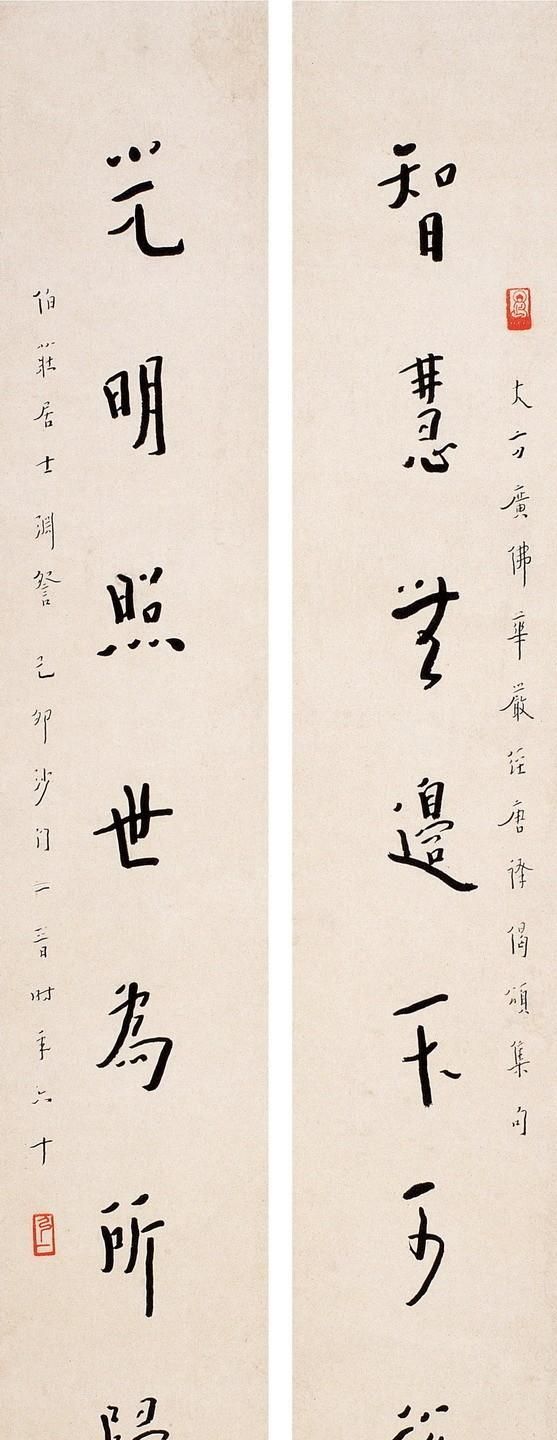 智慧無邊不可
大方廣佛華嚴經唐譯偈頌集句
光明照世為所
伯莊居士淵詧 己卯沙門二音時年六十